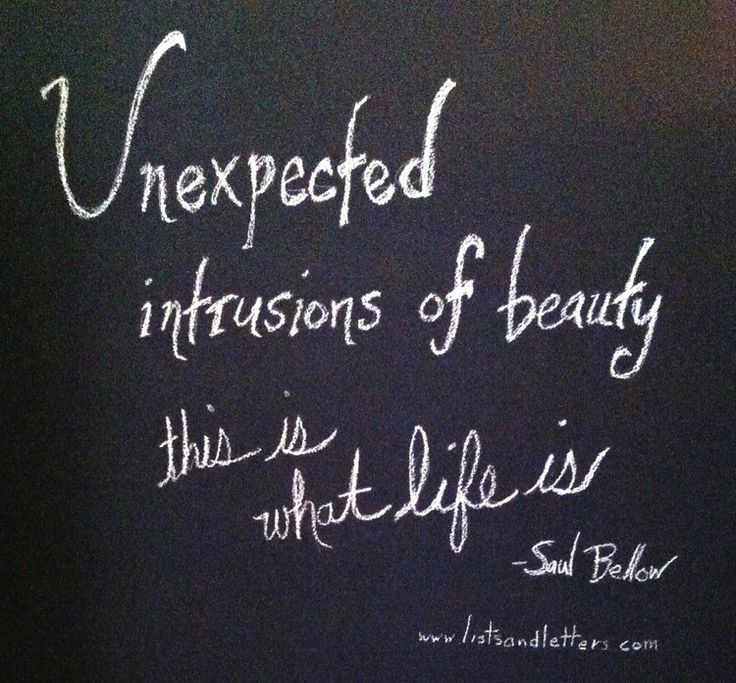 Unexpected
intrusions of beauty
this is
what life is
-Saul Bellow
www.listsandletters.com